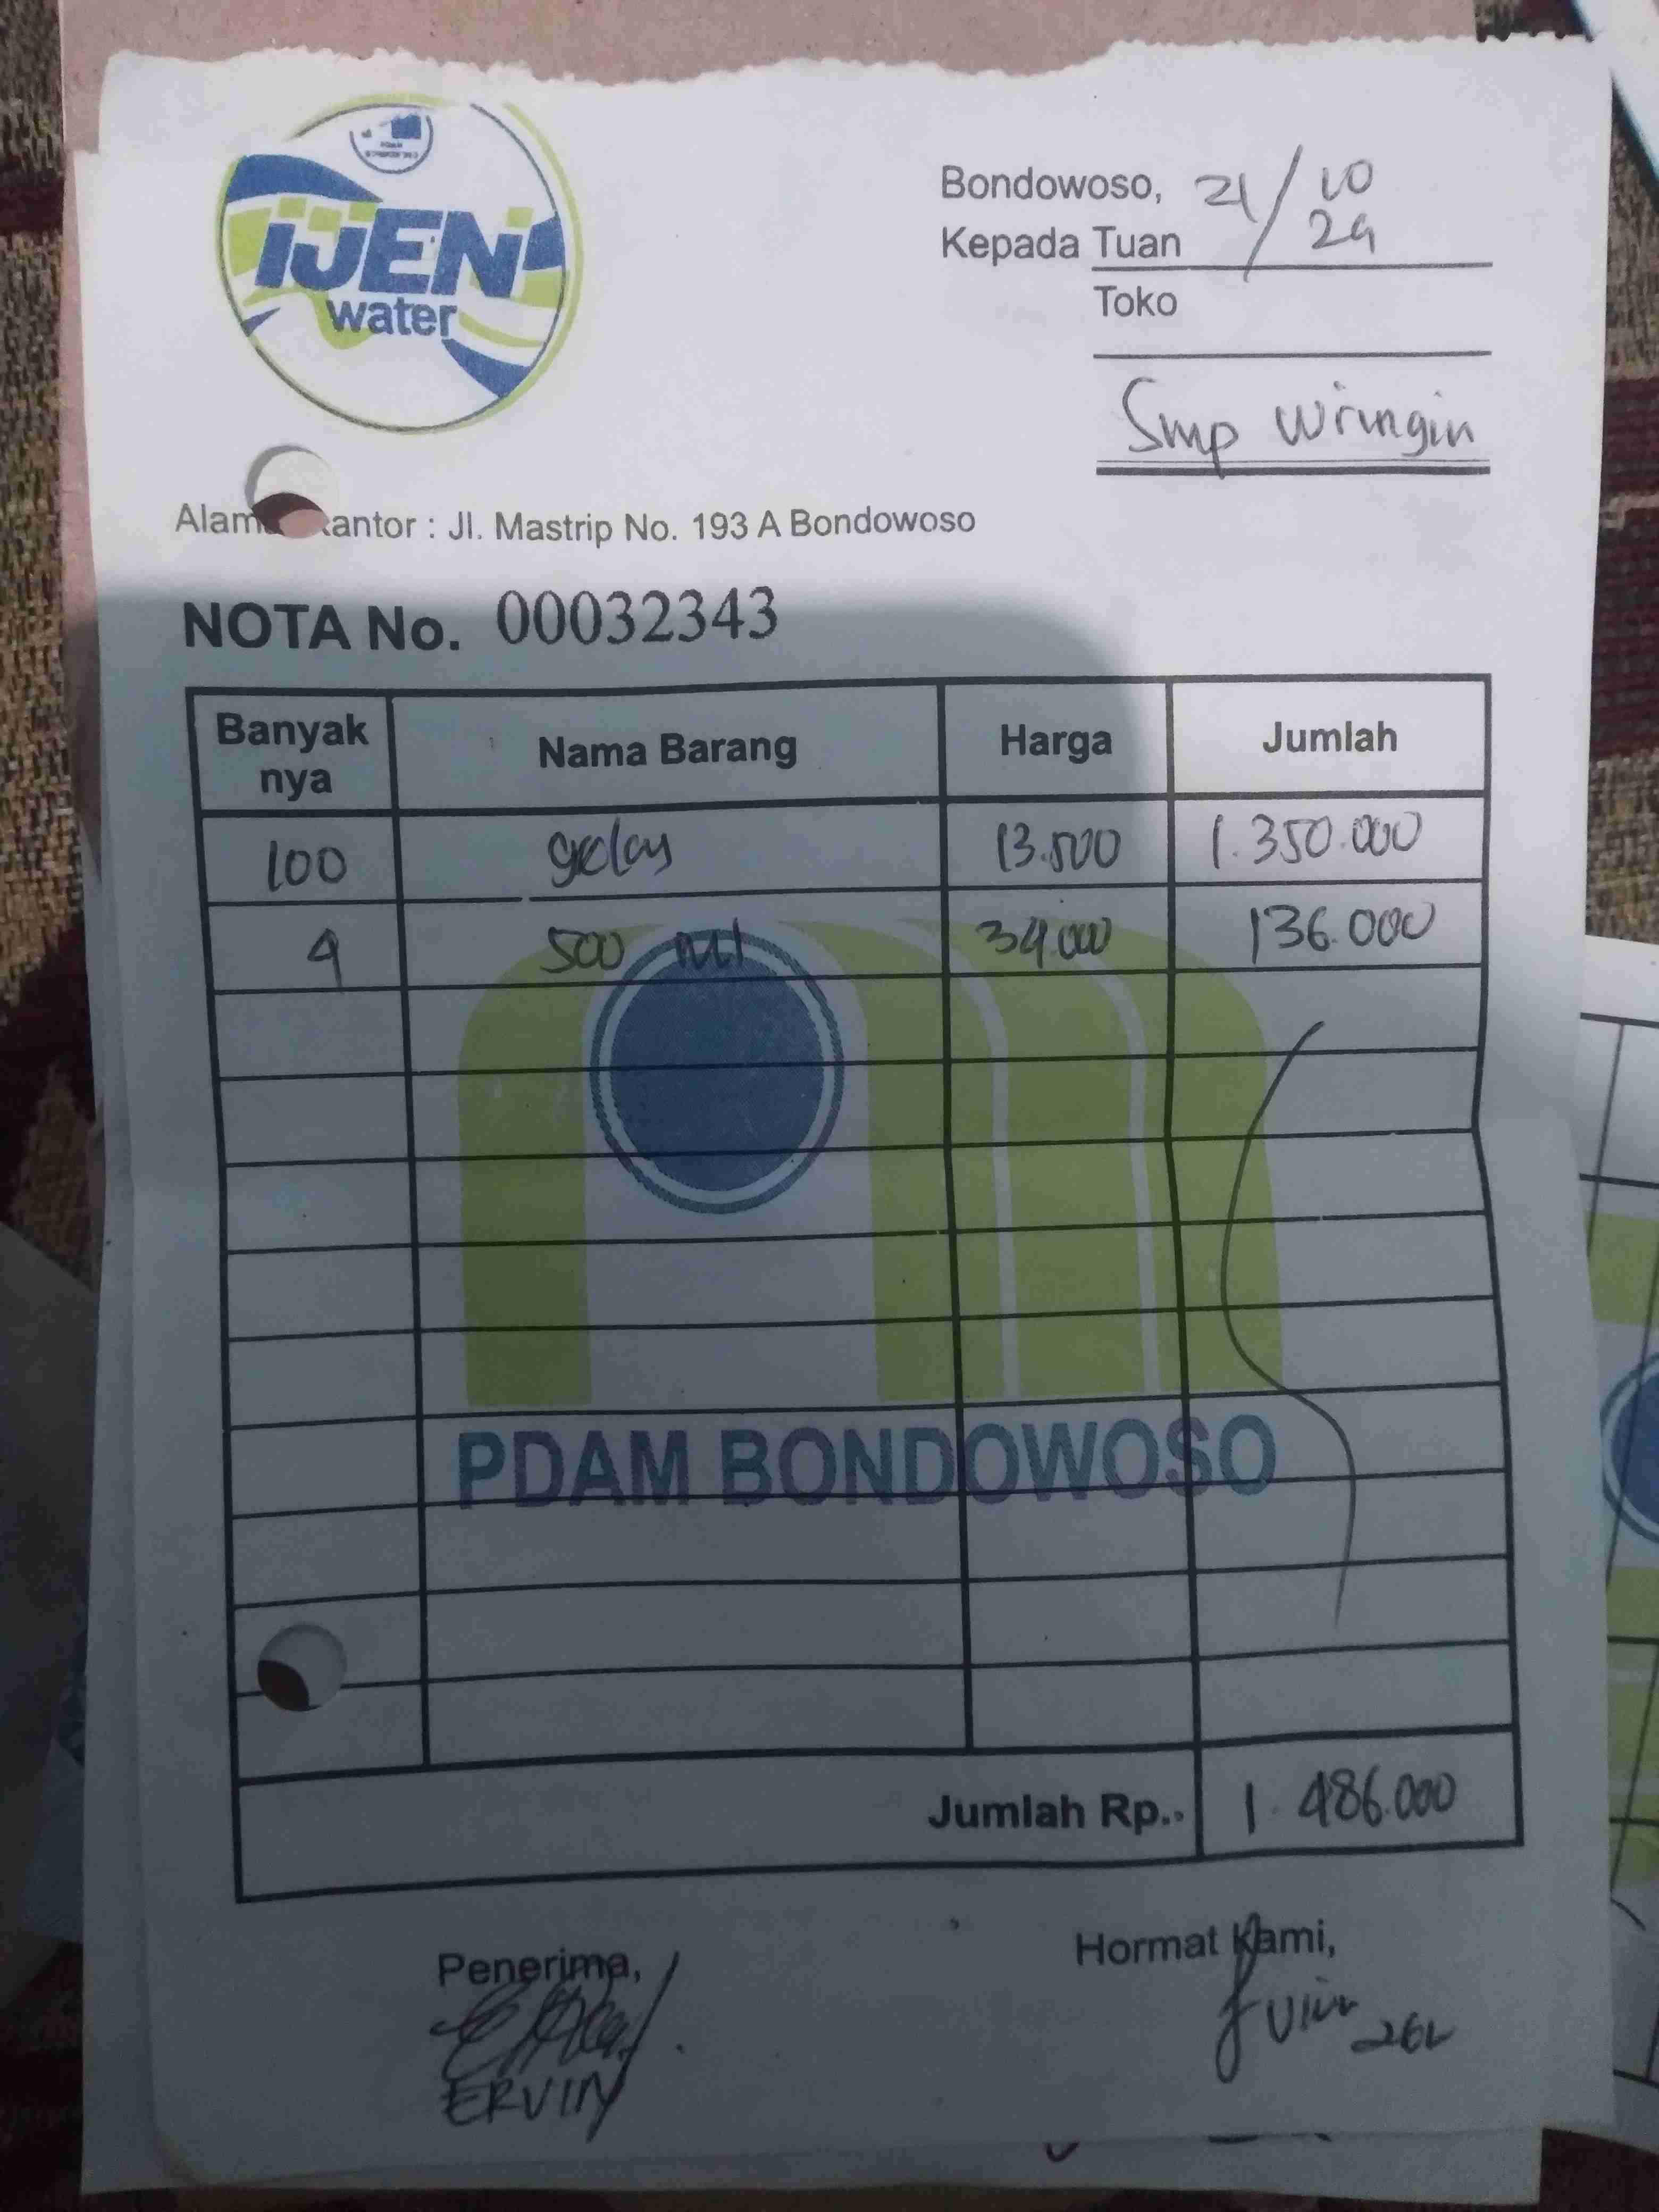 IJEN
water
Bondowoso, 21/10
24
Kepada Tuan
Toko
Smp Wringin
Alam kantor : Jl. Mastrip No. 193 A Bondowoso
NOTA No. 00032343
Banyak nya Nama Barang Harga Jumlah
100 gelas 13.500 1.350.000
4 500 ml 34.000 136.000
PDAM BONDOWOSO
Jumlah Rp.. 1.486.000
Penerima,
Hormat Kami,
ERVIN